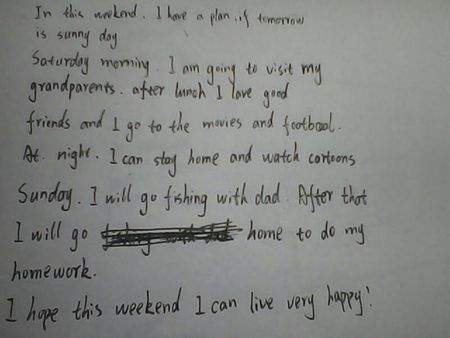 In this weekend. I have a plan. if tomorrow
is sunny day
Saturday morning. I am going to visit my
grandparents. after lunch I love good
friends and I go to the movies and footbool.
At. night. I can stay home and watch cartoons
Sunday. I will go fishing with dad. After that
I will go home to do my
homework.
I hope this weekend I can live very happy!